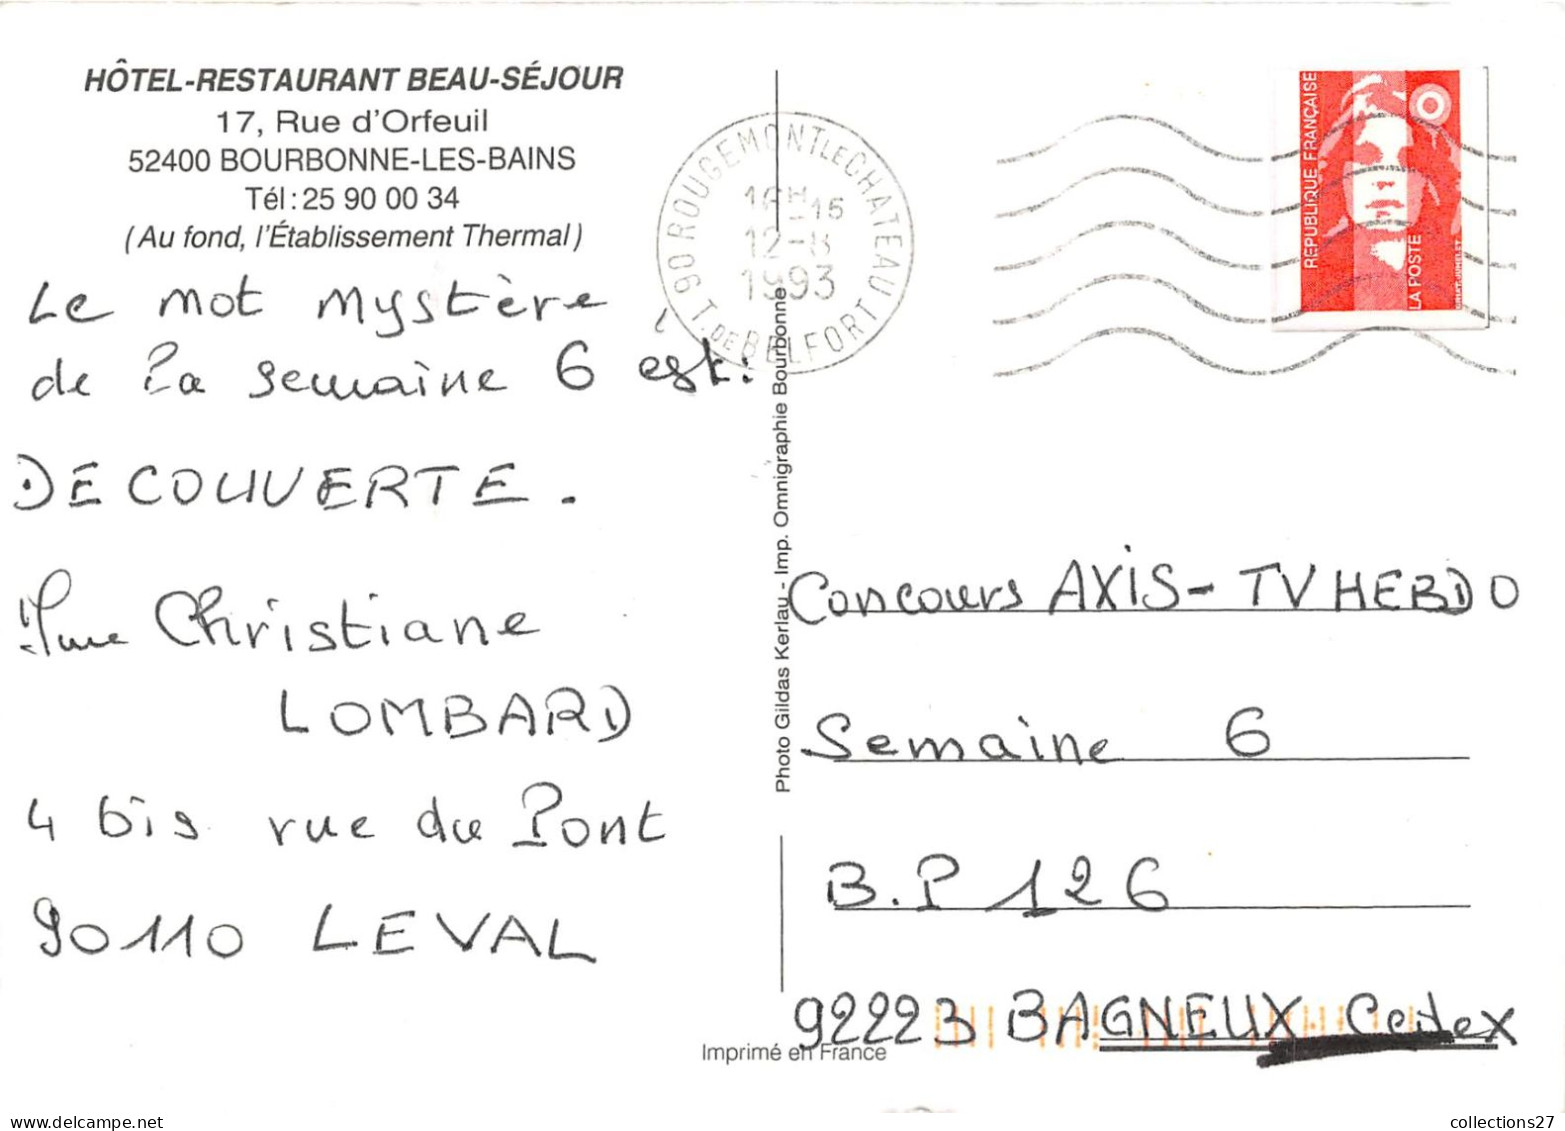 HÔTEL-RESTAURANT BEAU-SÉJOUR
17, Rue d'Orfeuil
52400 BOURBONNE-LES-BAINS
Tél : 25 90 00 34
(Au fond, l'Établissement Thermal)
Le mot mystère
de la semaine 6 est :
DECOUVERTE.
Mme Christiane
LOMBARD
4 bis rue du Pont
90110 LEVAL
90 ROUGEMONT LE CHATEAU
T. DE BELFORT
12-8
1993
Photo Gildas Kerlau - Imp. Omnigraphie Bourbonne
Imprimé en France
REPUBLIQUE FRANÇAISE
LA POSTE
Concours AXIS - TV HEBDO
Semaine 6
B.P 126
92223 BAGNEUX Cedex
collections27